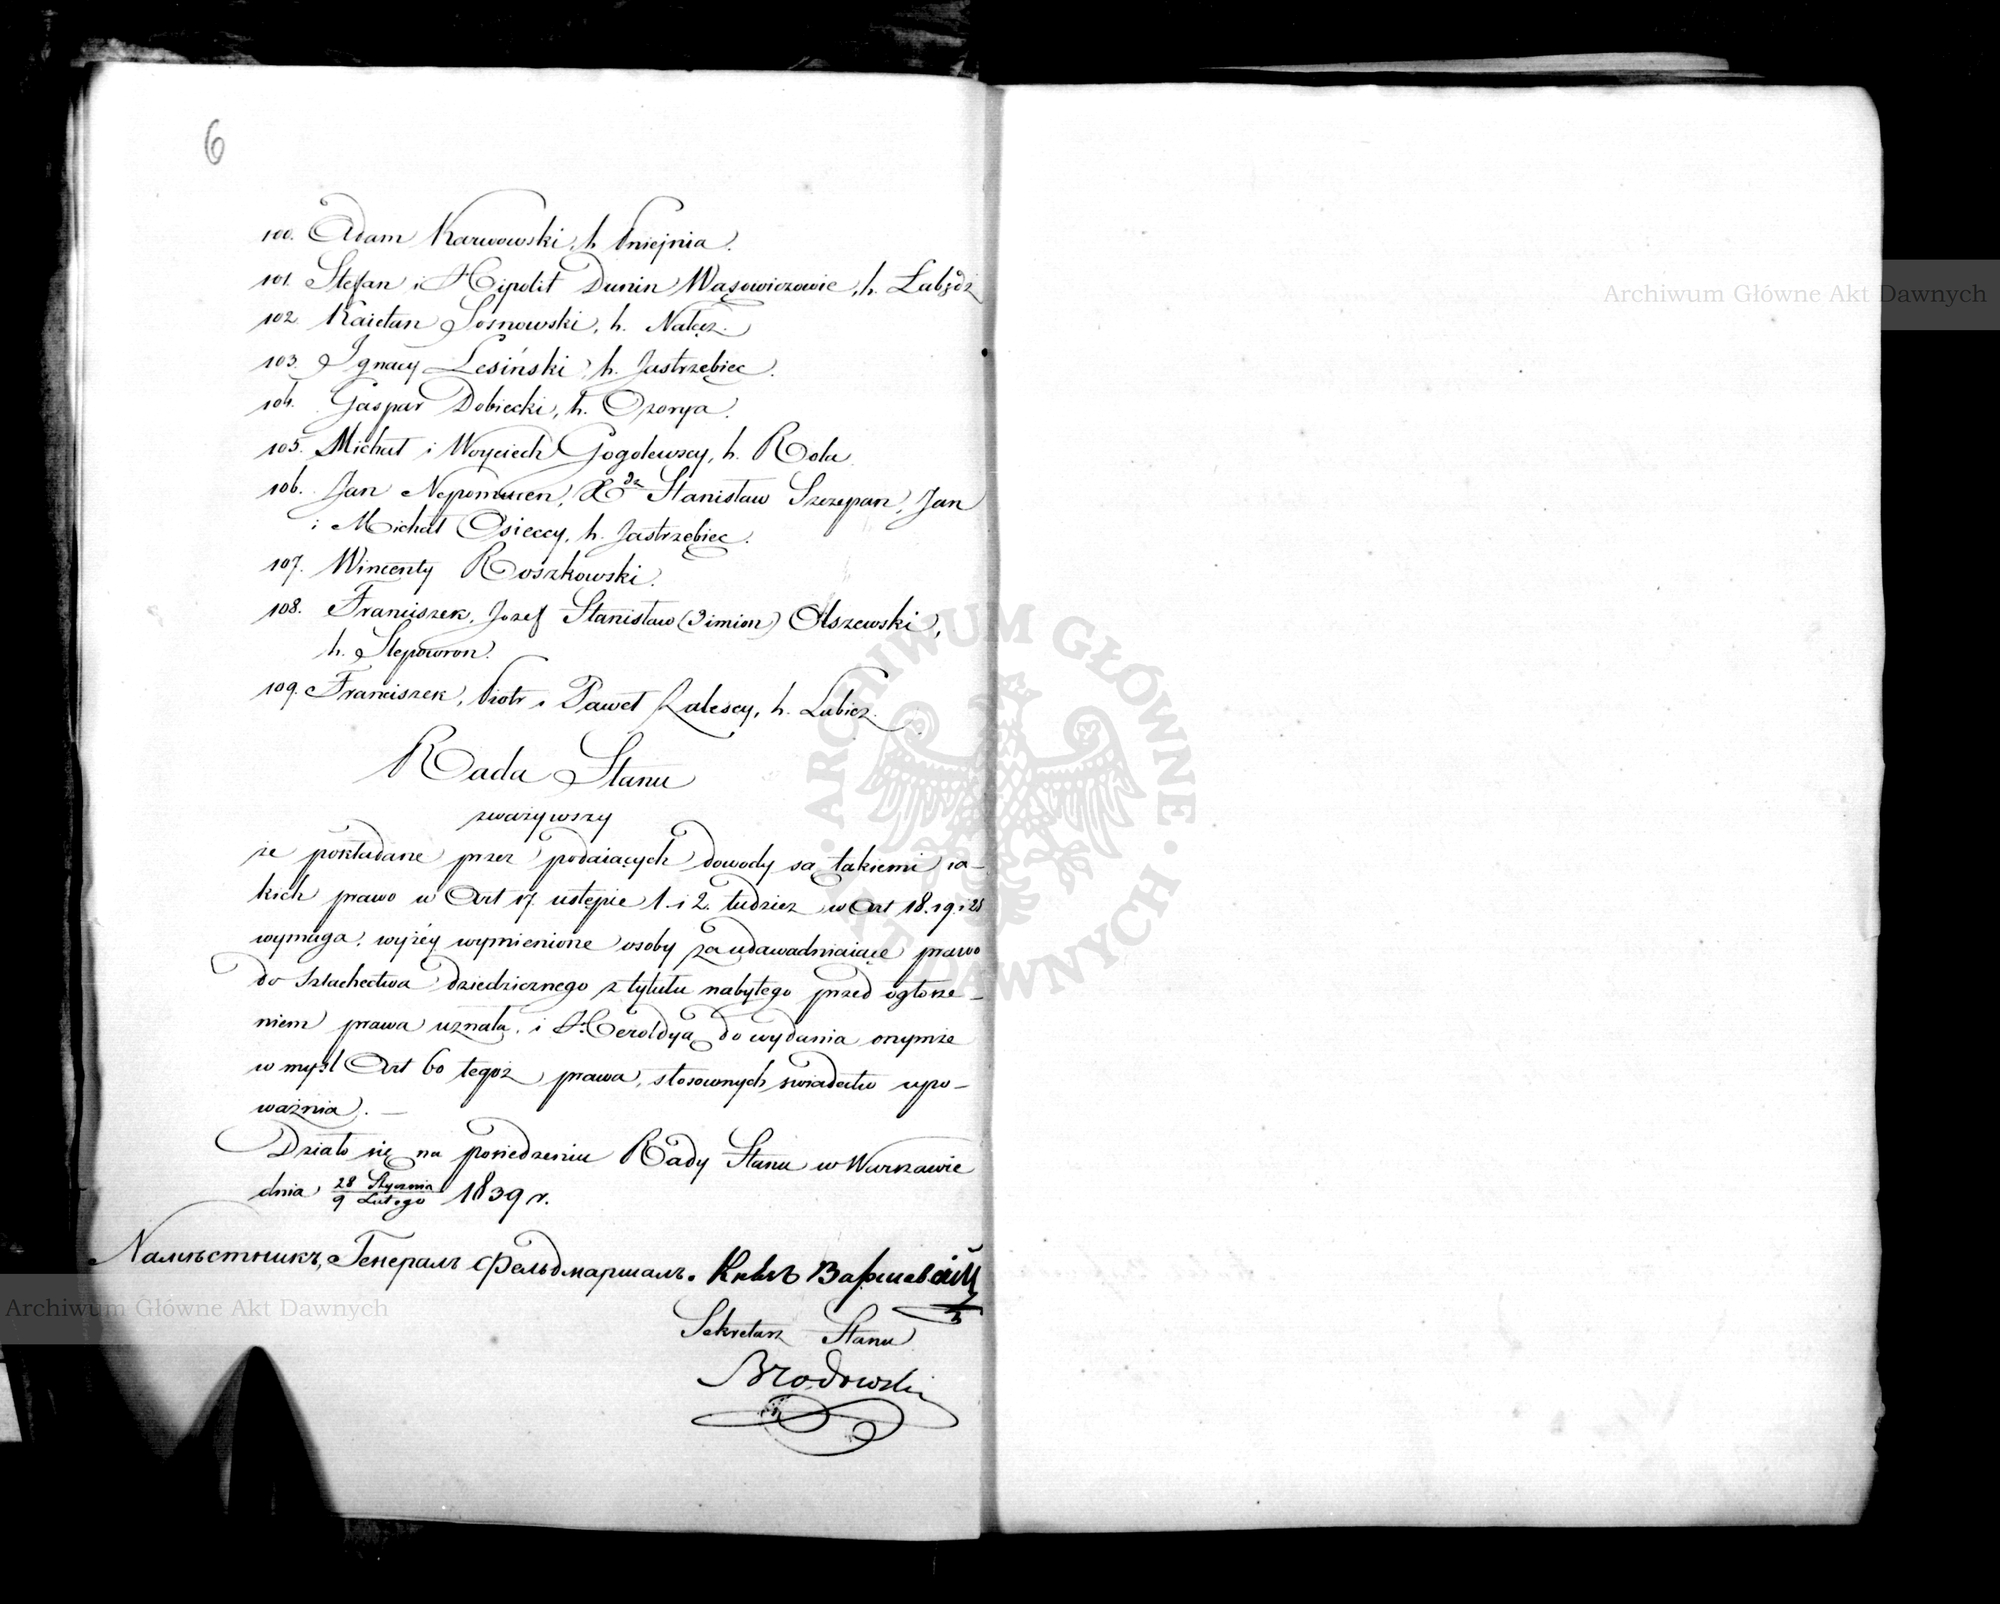 6
100. Adam Karwowski, h. Pniejnia.
101. Stefan i Hipolit Dunin Wąsowiczowie, h. Łabędź
102. Kaietan Sosnowski, h. Nałęcz.
103. Ignacy Lesiński, h. Jastrzębiec.
104. Gaspar Dobiecki, h. Ozorya.
105. Michał i Woyciech Gogolewscy, h. Rola.
106. Jan Nepomucen, Xdz Stanisław Szczepan, Jan
i Michał Osieccy, h. Jastrzębiec.
107. Wincenty Roszkowski.
108. Franciszek, Jozef Stanisław (3 imion) Olszewski,
h. Ślepowron.
109. Franciszek, Piotr i Paweł Zalescy, h. Lubicz.
Rada Stanu
zważywszy
że pokładane przez podaiących dowody są takiemi ia-
kich prawo w Art 17. ustępie 1. i 2. tudzież w Art 18. 19. i 28
wymaga, wyżéy wymienione osoby za udawadniaiące prawo
do szlachectwa dziedzicznego z tytułu nabytego przed ogłosze-
niem prawa uznała, i Heroldyą do wydania onymże
w myśl Art 60 tegoż prawa, stosownych świadectw upo-
ważnia. —
Działo się na posiedzeniu Rady Stanu w Warszawie
dnia 28 Stycznia / 9 Lutego 1839 r.
Намѣстникъ, Генералъ Фельдмаршалъ. Князь Варшавскій
Sekretarz Stanu
Brodowski
Archiwum Główne Akt Dawnych
Archiwum Główne Akt Dawnych
ARCHIWUM GŁÓWNE AKT DAWNYCH